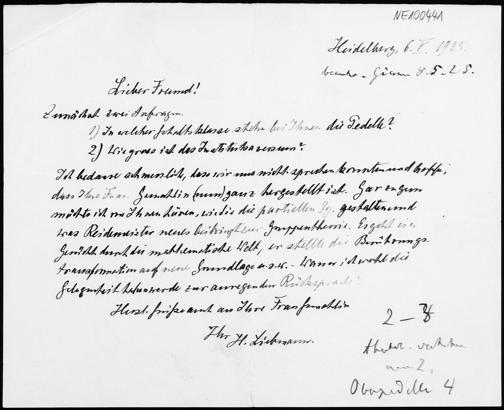 NE100441
Heidelberg, 6. V. 1925.
8.5.25.
Lieber Freund!
Zunächst zwei Anfragen.
1) In welcher Gehaltsklasse stehn bei Ihnen die Pedelle?
2) Wie gross ist das Institutsaversum?
Ich bedaure schmerzlich, dass wir uns nicht sprechen konnten und hoffe,
dass Ihre Frau Gemahlin (nun) ganz hergestellt ist. Gar zu gern
möchte ich von Ihnen hören, wie die partiellen Dg. gestalten und
was Reidemeister neues bringt zur Gruppentheorie. Es geht ein
Gerücht durch die mathematische Welt, er stellte die Berührungs
transformation auf neue Grundlage u.s.w. - Wann ist wohl die
Gelegenheit zur anregenden Rücksprache?
Herzl. Grüsse auch an Ihre Frau Gemahlin
Ihr H. Liebmann.
2 - 8
2.
Oberpedelle 4